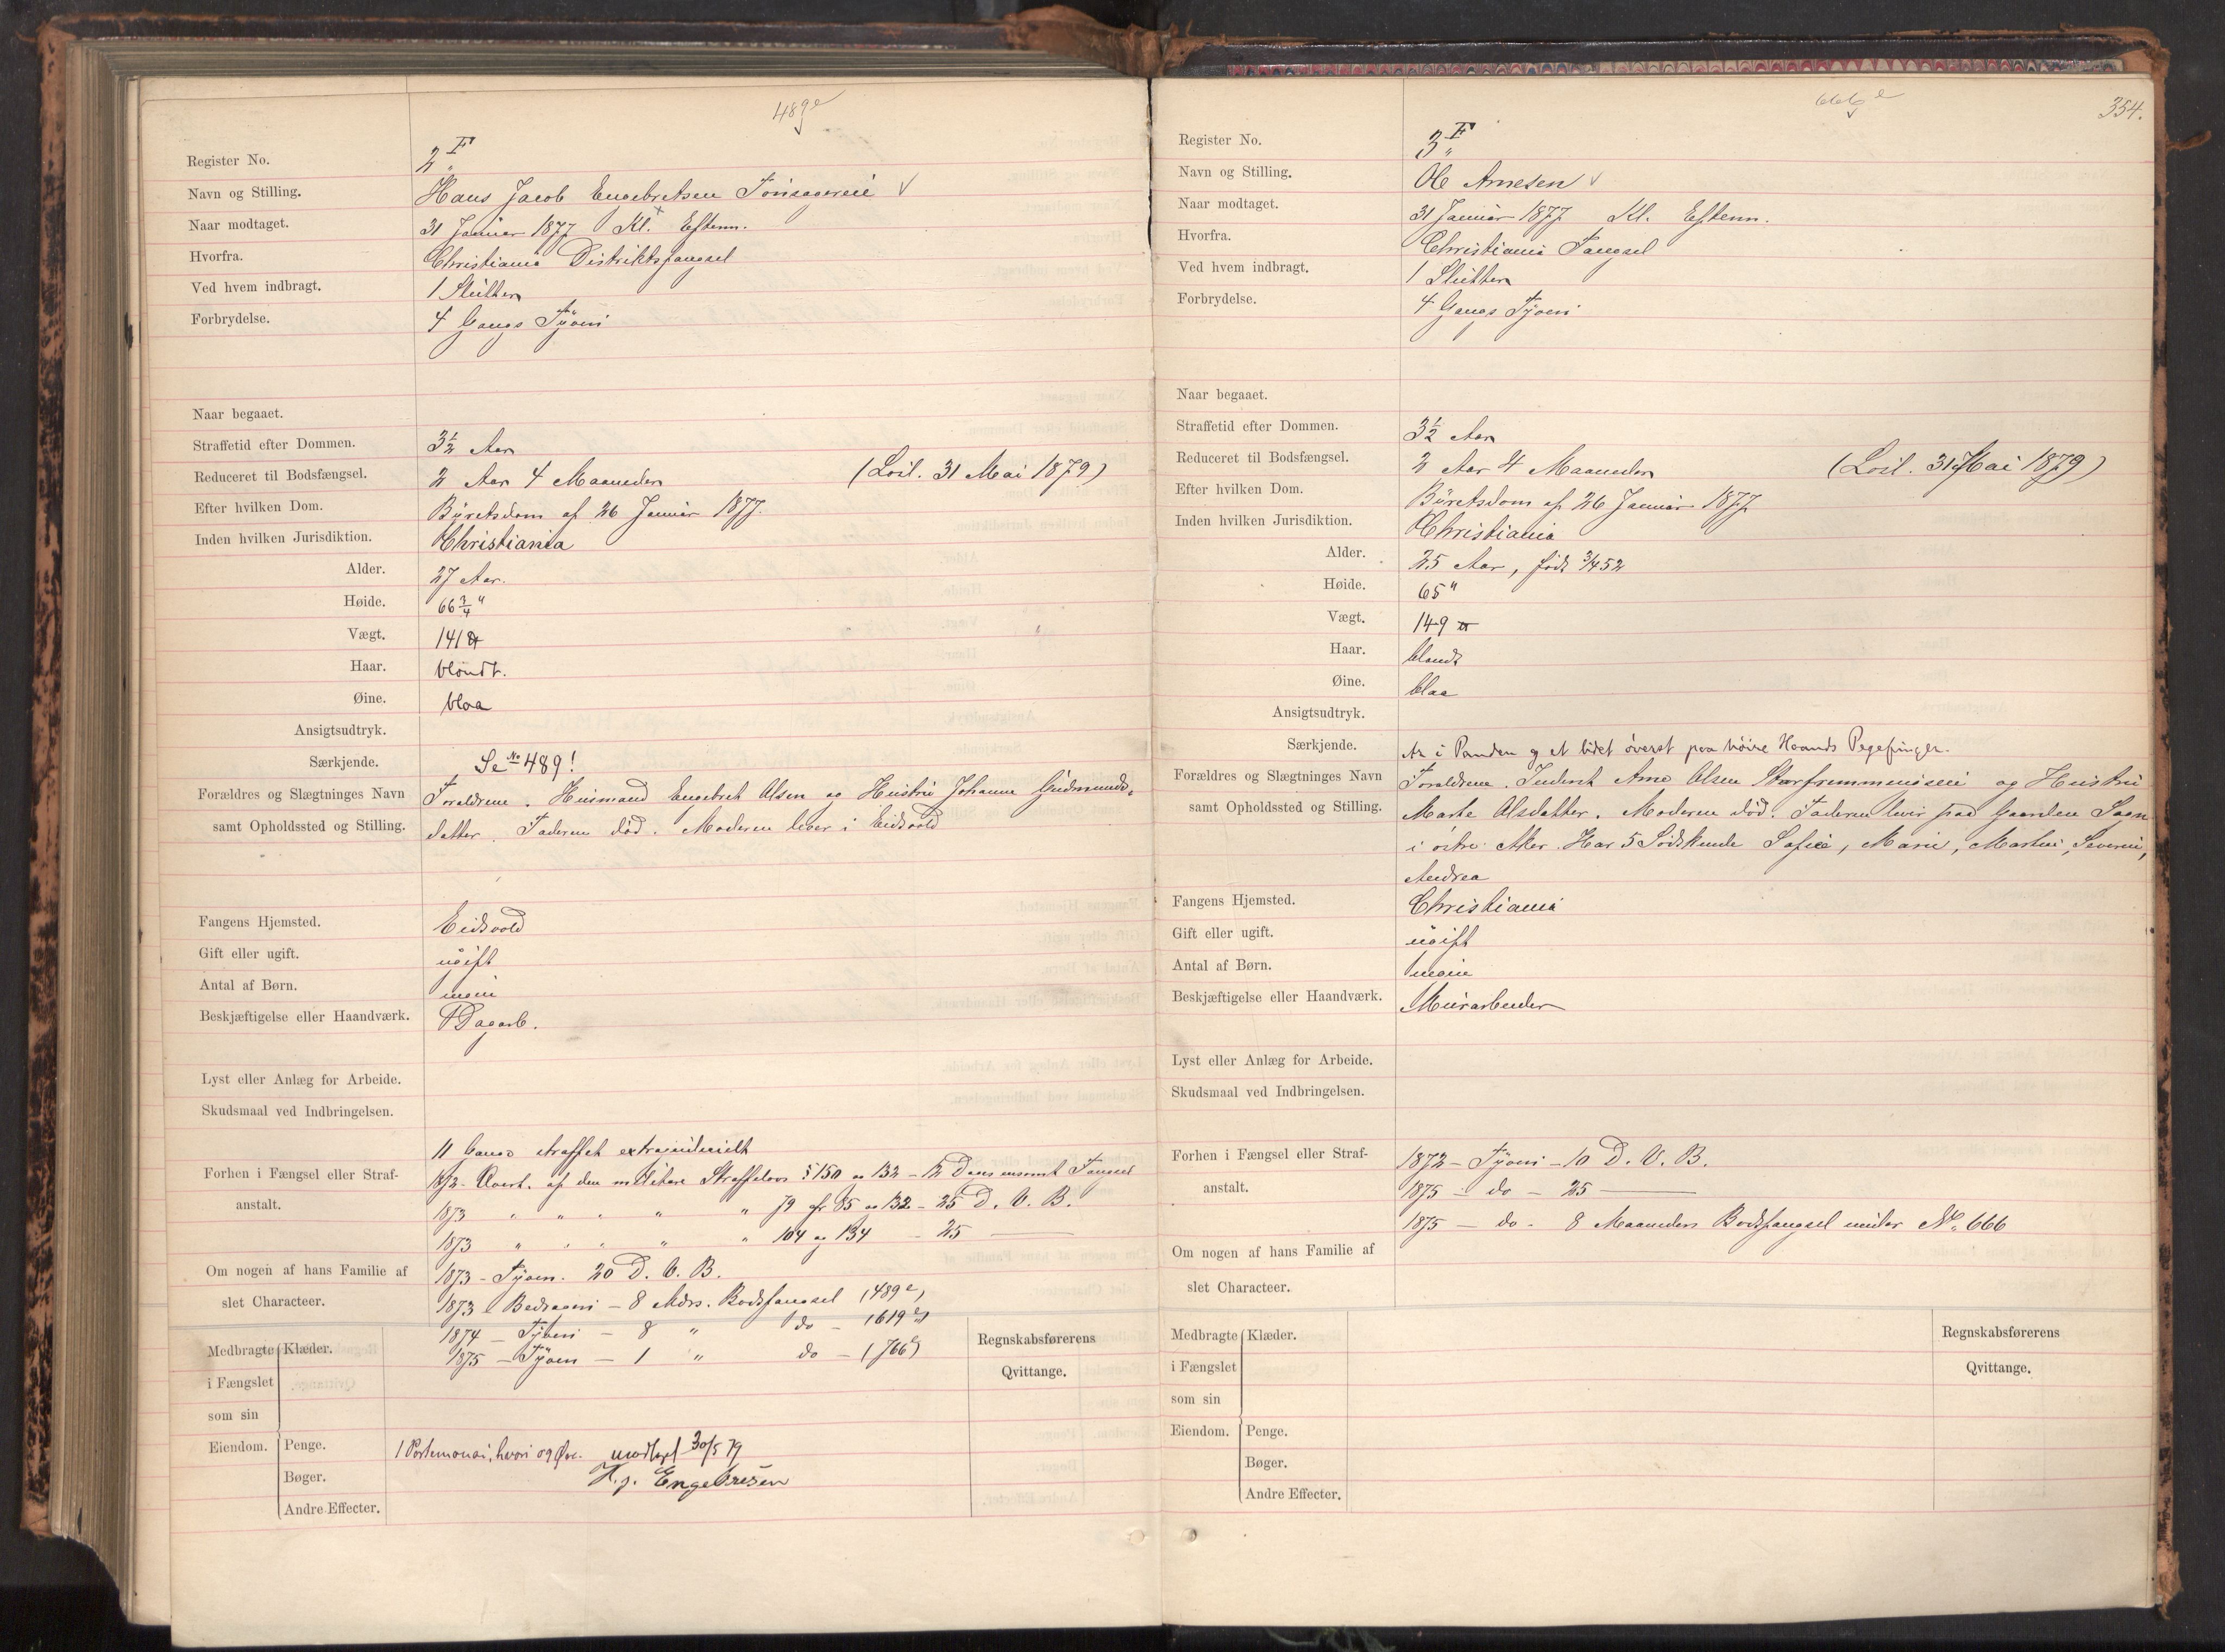 489e
Register No. 2F
Navn og Stilling. Hans Jacob Engebretsen Tønsagereie V
Naar modtaget. 31 Januar 1877 Kl. Efterm.
Hvorfra. Christiania Distriktsfængsel
Ved hvem indbragt. 1 Slutter
Forbrydelse. 4 Gangs Tyveri
Naar begaaet.
Straffetid efter Dommen. 3½ Aar
Reduceret til Bodsfængsel. 2 Aar 4 Maaneder (Løsl. 31 Mai 1879)
Efter hvilken Dom. Byretsdom af 26 Januar 1877.
Inden hvilken Jurisdiktion. Christiania
Alder. 27 Aar.
Høide. 66¾"
Vægt. 141 ℔
Haar. blondt.
Øine. blaa
Ansigtsudtryk.
Særkjende. Se No 489!
Forældres og Slægtninges Navn Forældrene. Husmand Engebret Olsen og Hustru Johanne Gudmunds-
samt Opholdssted og Stilling. datter. Faderen død. Moderen lever i Eidsvold
Fangens Hjemsted. Eidsvold
Gift eller ugift. ugift
Antal af Børn. ingen
Beskjæftigelse eller Haandværk. Dagarb.
Lyst eller Anlæg for Arbeide.
Skudsmaal ved Indbringelsen.
11 Gange straffet extrajudicielt
Forhen i Fængsel eller Straf- 1872 - Overt. af den militære Straffelovs § 150 og 132 - 12 Dages Fængsel
anstalt. 1873 " " " " " 79 cfr 85 og 132 - 25 D. V. B.
1873 " " " " " 104 og 134 - 25 —
Om nogen af hans Familie af 1873 - Tyveri. 20 D. V. B.
slet Characteer. 1873 - Bedrageri - 8 Mdrs. Bodsfængsel (489e)
1874 - Tyveri - 8 " do - (619e)
1875 - Tyveri - 1 " do - (766e)
Medbragte Klæder. Regnskabsførerens
i Fængslet Qvittange.
som sin
Eiendom. Penge. 1 Portemonai, hvori 09 Øre. modtaget 30/5 79
Bøger. H. J. Engebresen
Andre Effecter.
666e 354.
Register No. 3F
Navn og Stilling. Ole Arnesen V
Naar modtaget. 31 Januar 1877 Kl. Efterm.
Hvorfra. Christiania Fængsel
Ved hvem indbragt. 1 Slutter
Forbrydelse. 4 Gangs Tyveri
Naar begaaet.
Straffetid efter Dommen. 3½ Aar
Reduceret til Bodsfængsel. 2 Aar 4 Maaneder (Løsl. 31 Mai 1879)
Efter hvilken Dom. Byretsdom af 26 Januar 1877
Inden hvilken Jurisdiktion. Christiania
Alder. 25 Aar, født 3/4 52
Høide. 65"
Vægt. 149 ℔
Haar. blondt
Øine. blaa
Ansigtsudtryk.
Særkjende. Ar i Panden og et lidet øverst paa høire Haands Pegefinger.
Forældres og Slægtninges Navn Forældrene. Inderst Arne Olsen og Hustru
samt Opholdssted og Stilling. Marte Olsdatter. Moderen død. Faderen lever paa Gaarden Sogn
i østre Aker. Har 5 Sødskende Sofie, Marie, Martin, Severin,
Andrea
Fangens Hjemsted. Christiania
Gift eller ugift. ugift
Antal af Børn. ingen
Beskjæftigelse eller Haandværk. Murarbeider
Lyst eller Anlæg for Arbeide.
Skudsmaal ved Indbringelsen.
Forhen i Fængsel eller Straf- 1872 - Tyveri - 10 D. V. B.
anstalt. 1875 - do - 25 —
1875 - do - 8 Maaneders Bodsfængsel under No. 666
Om nogen af hans Familie af
slet Characteer.
Medbragte Klæder. Regnskabsførerens
i Fængslet Qvittange.
som sin
Eiendom. Penge.
Bøger.
Andre Effecter.